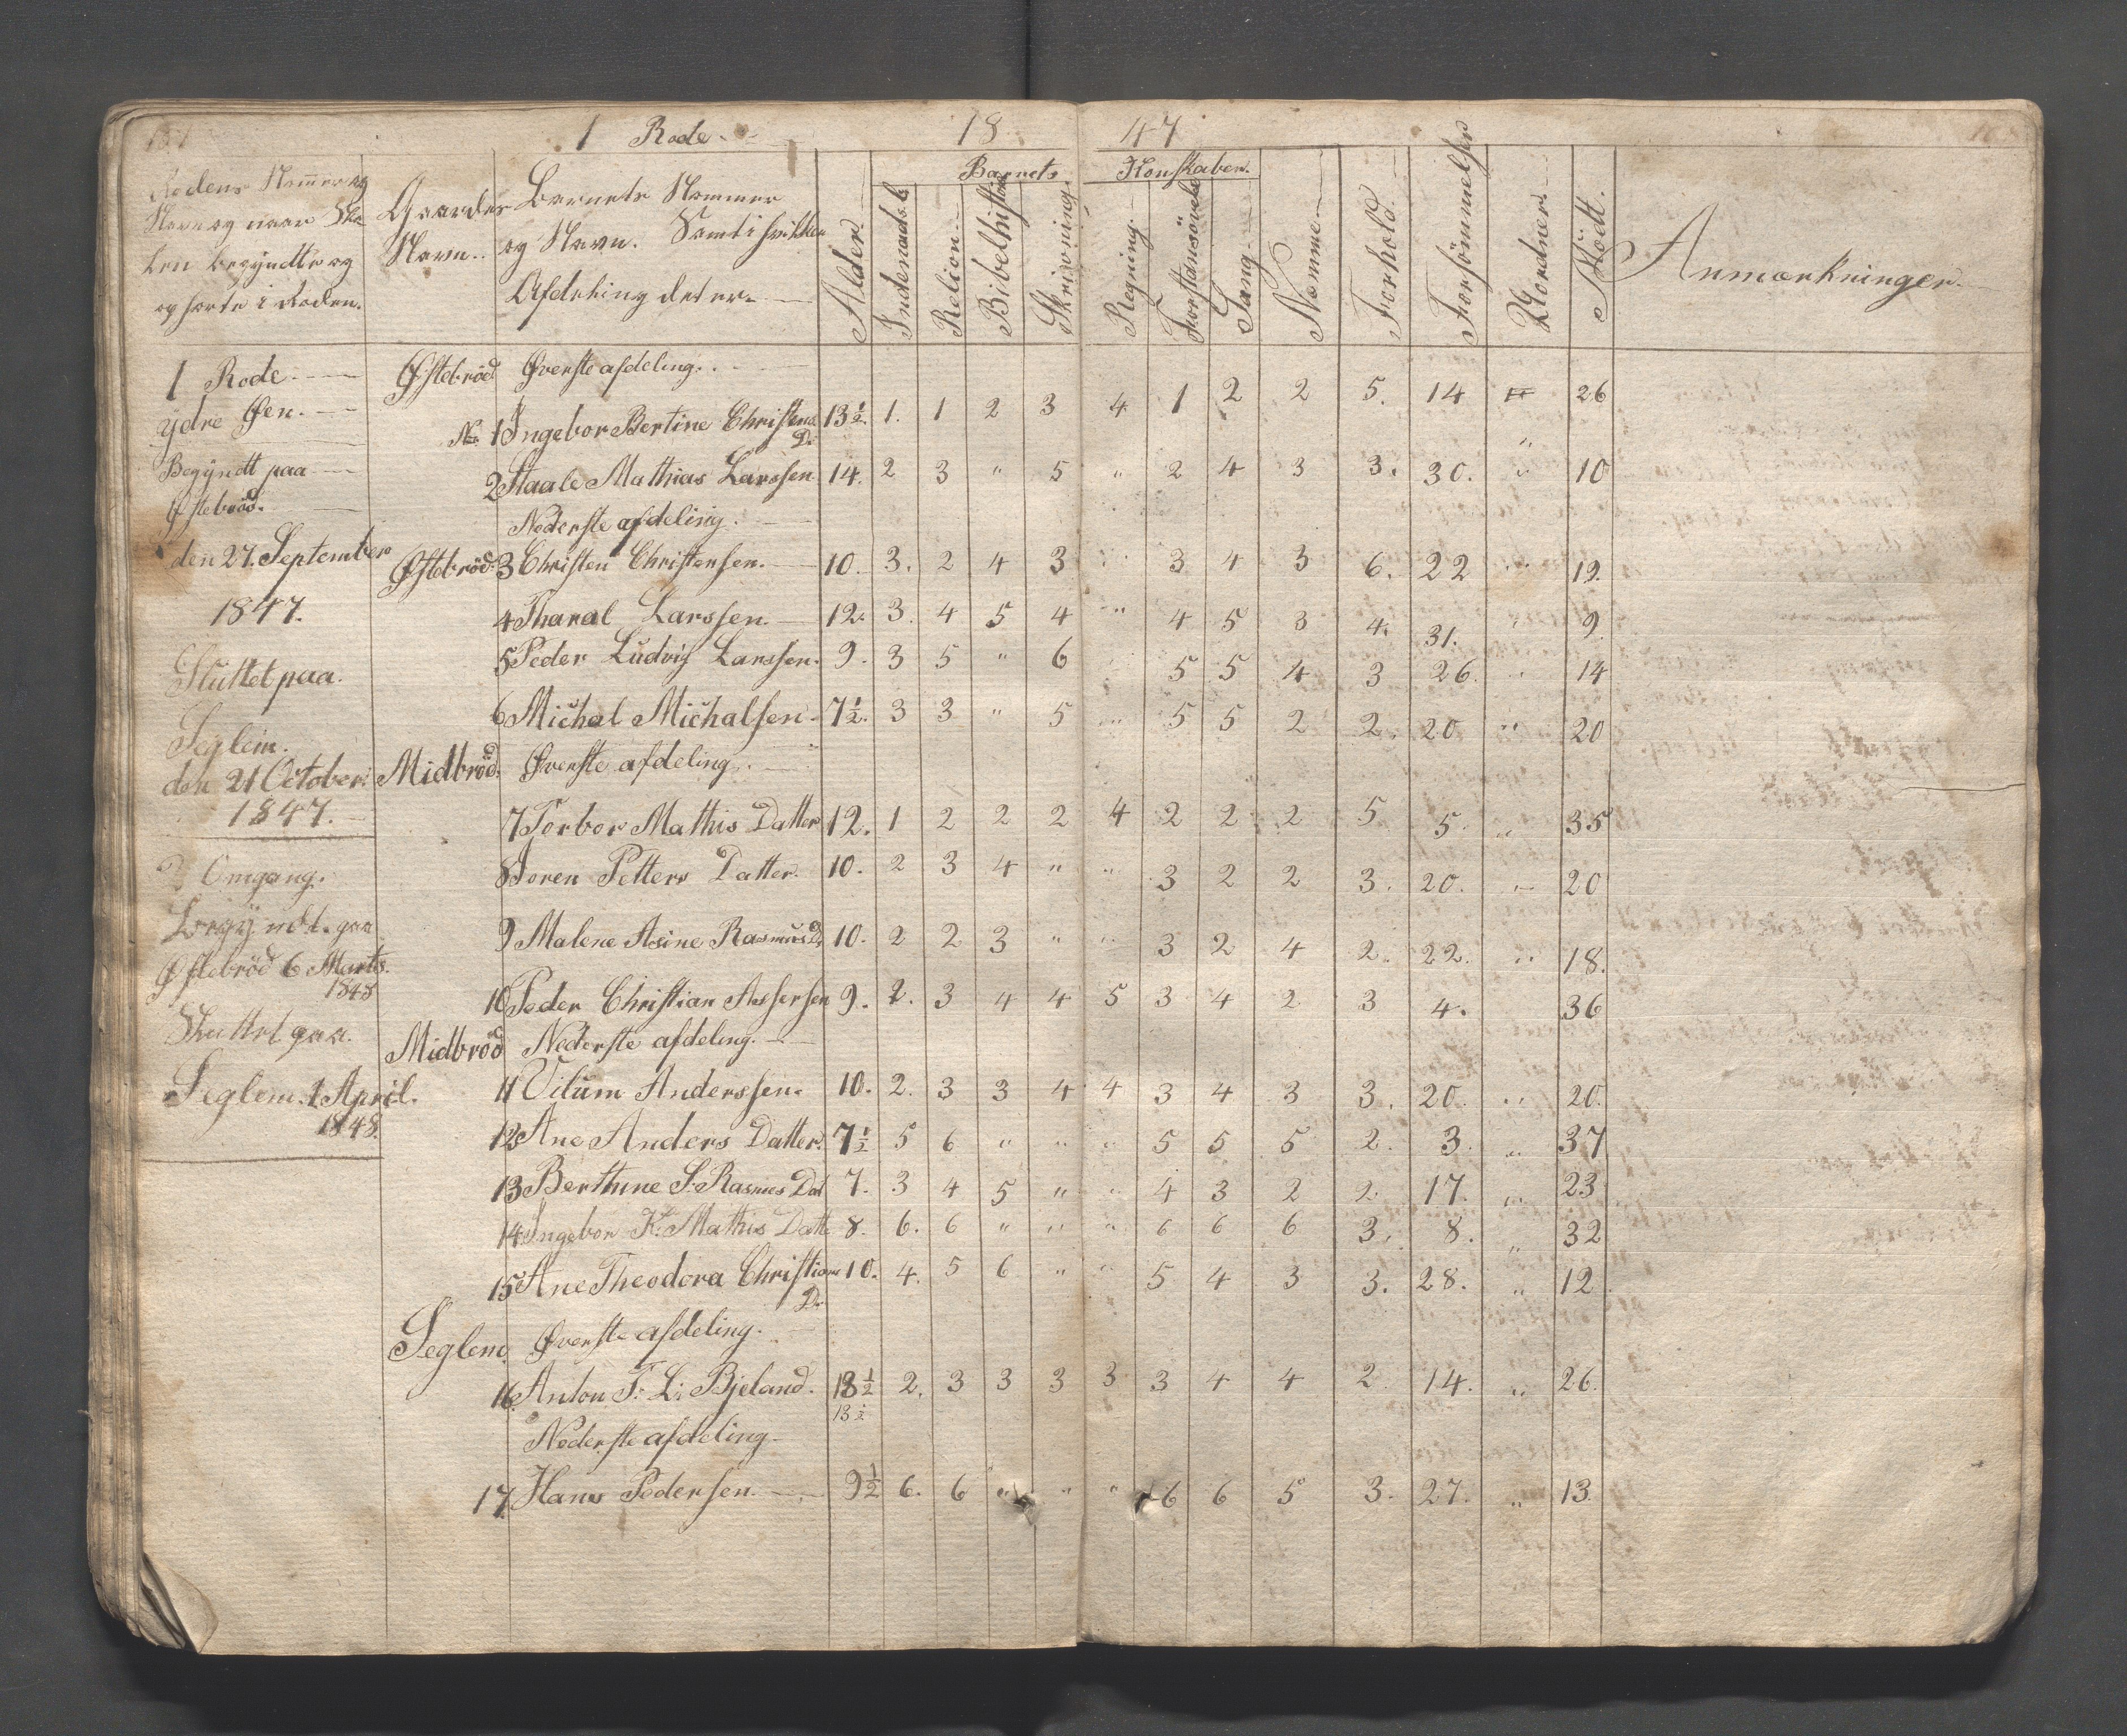 1 Rode 18 47
Rodens Nommer og
Navn og naar Sko
len begyndte og
ophørte i Roden.
Gaardes
Navn.
Barnets Nommer
og Navn. Samt i hvilken
Afdeling det er.
Alder.
Barnets Konskaber.
Indenadsl.
Relion.
Bibelhistori
Skrivning.
Regning.
Forstansövels
Sang.
Nomme.
Forhold.
Forsömmelser
Uordner.
Mödt.
Anmærkninger.
1 Rode.
ydre Øen.
Begyndt paa
Østebröd.
den 27. September
1847.
Sluttet paa.
Seglem.
den 21 October.
1847.
2 Omgang.
Begyndt paa
Østebröd 6 Marts.
1848
Sluttet paa.
Seglem. 1 April.
1848.
Østebröd Øverste afdeling.
No 1 Ingebor Bertine Christens D. 13½. 1. 1 2 3 4 1 2 2 5. 14 " 26
2 Staale Mathias Larssen 14. 2 3 " 5 " 2 4 3 3. 30. " 10
Nederste afdeling.
Østebröd. 3 Christen Christensen. 10. 3. 2 4 3 " 3 4 3 6. 22 " 19.
4 Tharal Larssen. 12. 3. 4 5 4 " 4 5 3 4. 31. " 9
5 Peder Ludvig Larssen. 9. 3 5 " 6 5 5 4 3 26. " 14
6 Michal Michalsen. 7½. 3 3 " 5 " 5 5 2 2. 20 " 20
Midbröd. Øverste afdeling.
7 Torbor Mathis Datter 12. 1 2 2 2 4 2 2 2 5 5. " 35
8 Joren Petters Datter. 10. 2 3 4 " " 3 2 2 3. 20. " 20
9 Malene Asine Rasmus D. 10. 2 2 3 " " 3 2 4 2. 22. " 18.
10 Peder Christian Assersen 9. 2. 3 4 4 5 3 4 2 3 4. 36
Midbröd Nederste afdeling.
11 Vilum Anderssen. 10. 2. 3 3 4 4 3 4 3 3. 20. " 20.
12 Ane Anders Datter. 7½ 5 6 " " " 5 5 5 2. 3. " 37
13 Berthine S. Rasmus Dat 7. 3 4 5 " " 4 3 2 2 17. " 23
14 Ingebor K. Mathis Datt 8. 6. 6 " " " 6 6 6 3. 8. " 32
15 Ane Theodora Christians D. 10. 4. 5 6 " " 5 4 3 3. 28. " 12
Seglem. Øverste afdeling.
16 Anton T. L. Bjeland. 18½ 2. 3 3 3 3 3 4 4 2. 14. " 26.
13½
Nederste afdeling
17 Hans Pedersen. 9½ 6. 6 " " " 6 6 5 3. 27. " 13.